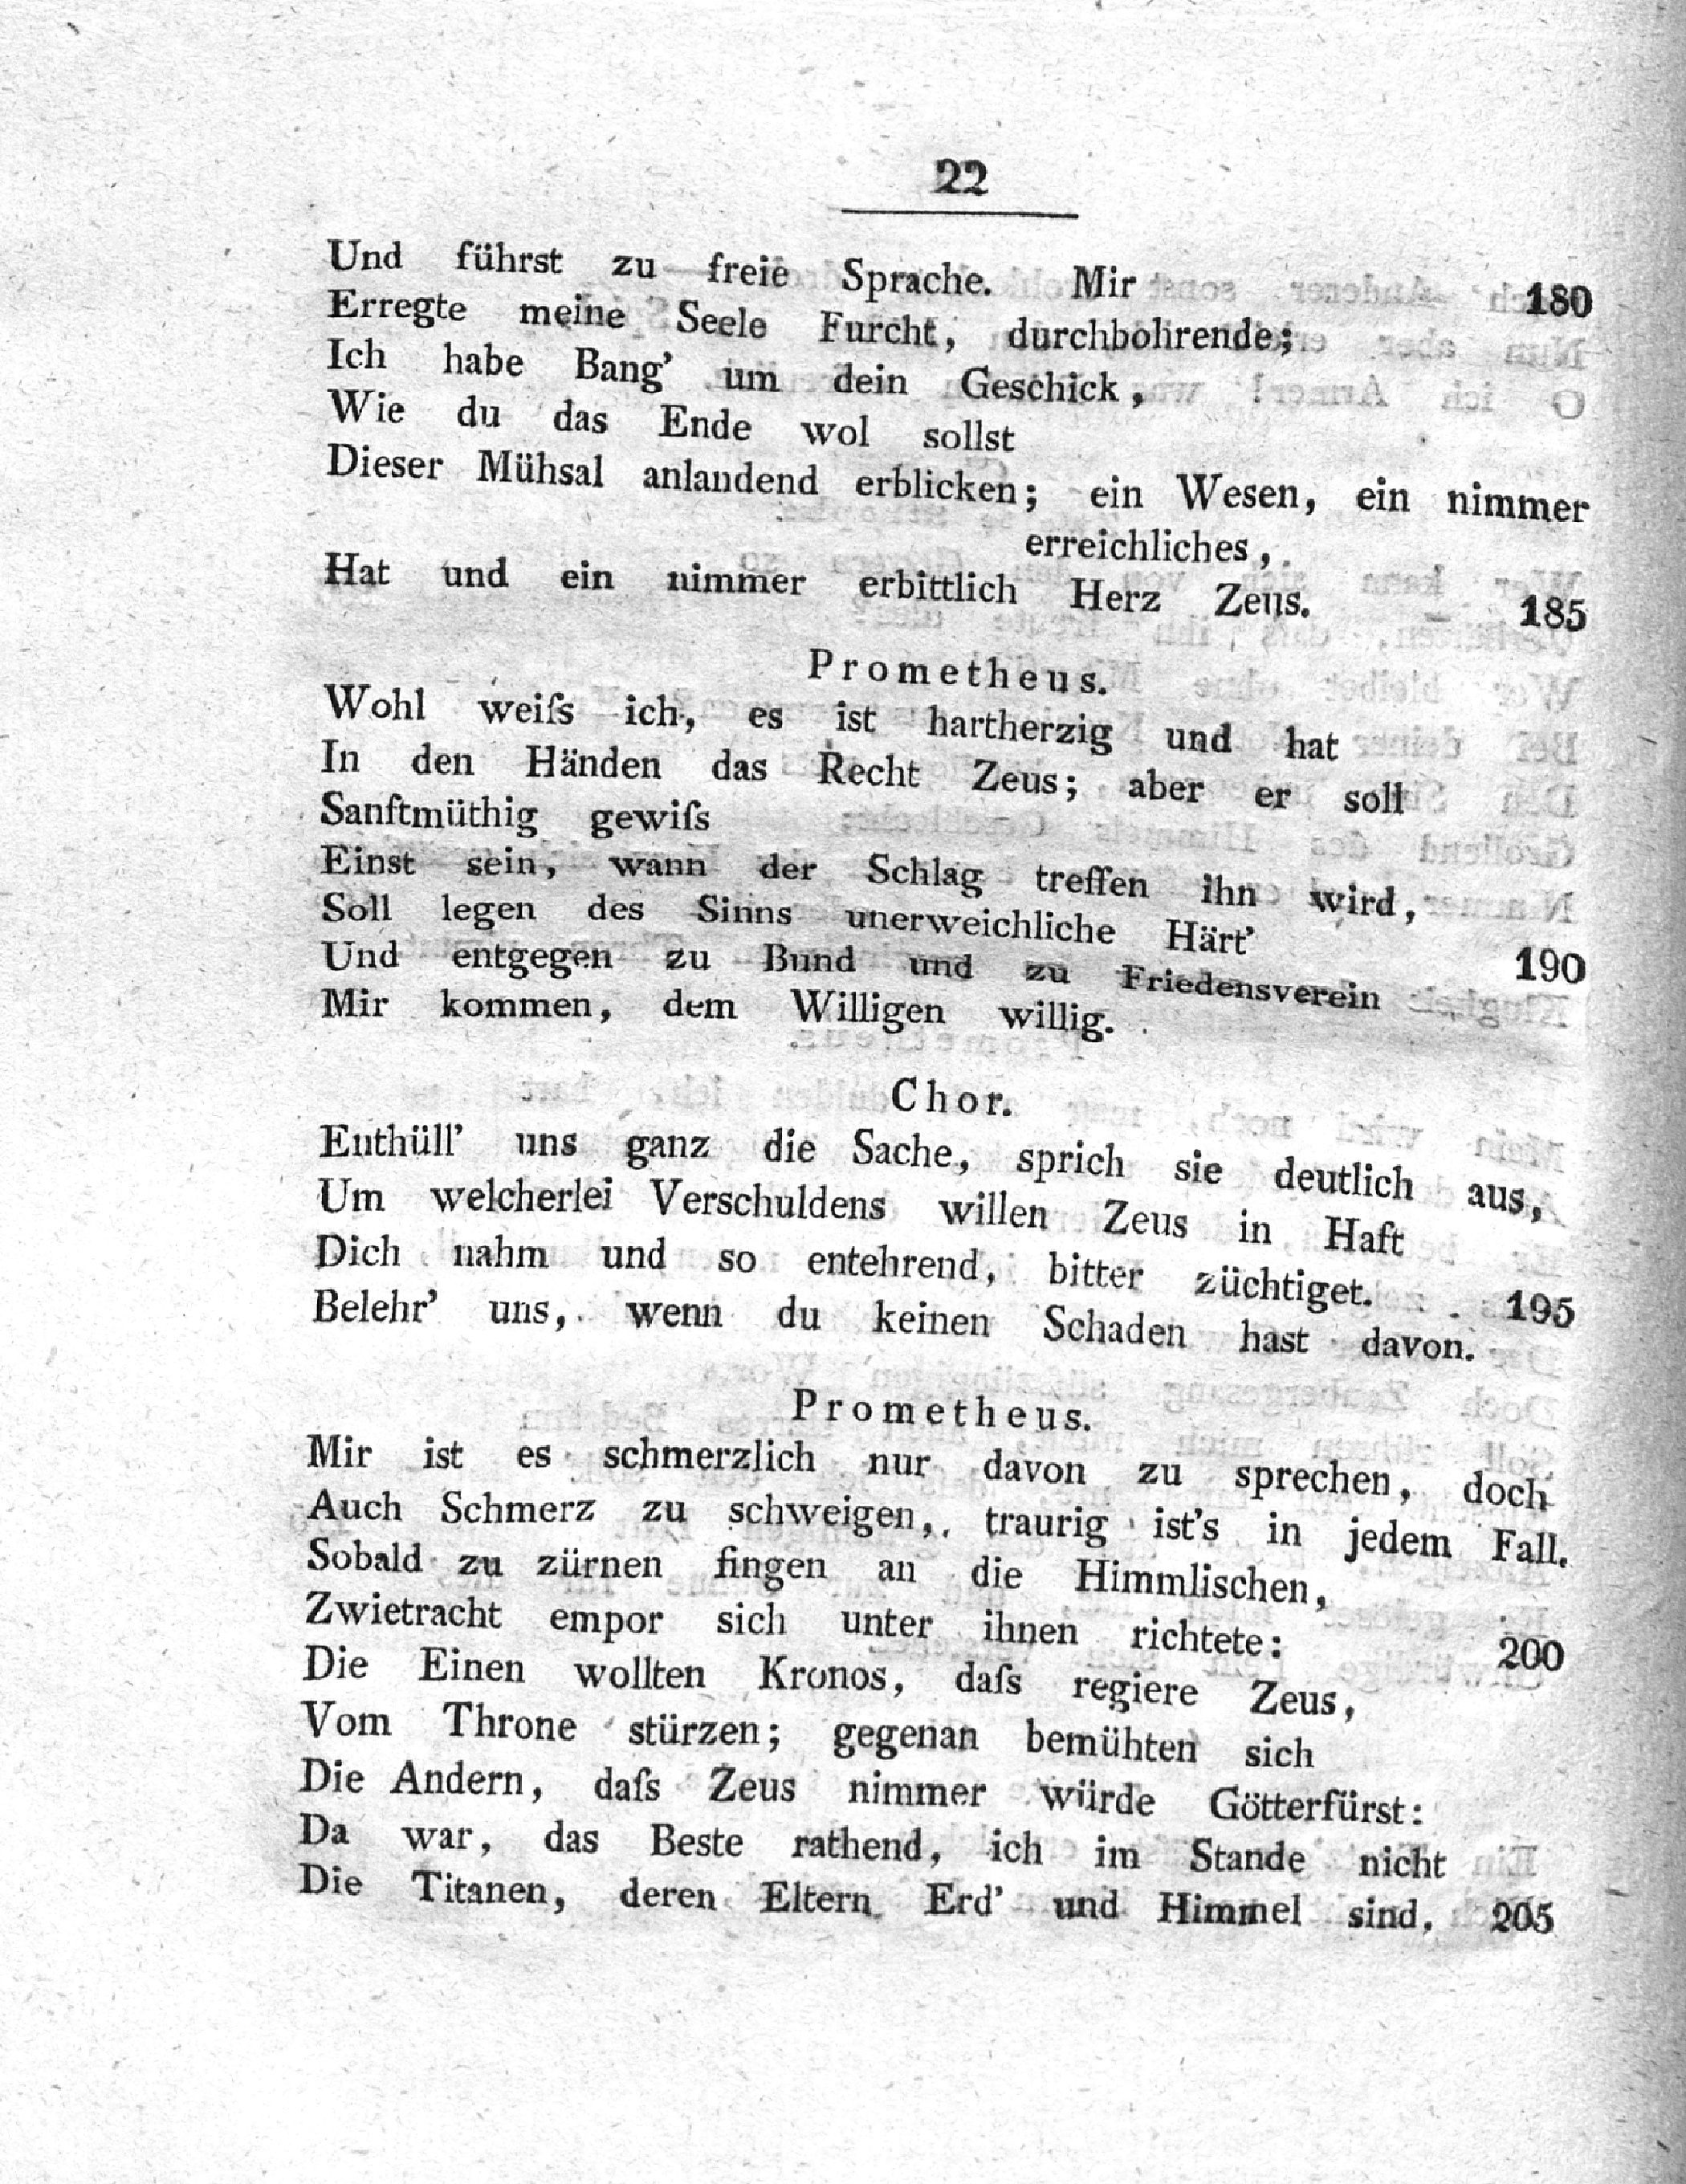 22
Und führst zu freie Sprache. Mir 180
Erregte meine Seele Furcht, durchbohrende;
Ich habe Bang' um dein Geschick,
Wie du das Ende wol sollst
Dieser Mühsal anlandend erblicken; ein Wesen, ein nimmer
erreichliches,
Hat und ein nimmer erbittlich Herz Zeus. 185
Prometheus.
Wohl weiſs ich, es ist hartherzig und hat
In den Händen das Recht Zeus; aber er soll
Sanftmüthig gewiſs
Einst sein, wann der Schlag treffen ihn wird,
Soll legen des Sinns unerweichliche Härt'
Und entgegen zu Bund und zu Friedensverein 190
Mir kommen, dem Willigen willig.
Chor.
Enthüll' uns ganz die Sache, sprich sie deutlich aus,
Um welcherlei Verschuldens willen Zeus in Haft
Dich nahm und so entehrend, bitter züchtiget. 195
Belehr' uns, wenn du keinen Schaden hast davon.
Prometheus.
Mir ist es schmerzlich nur davon zu sprechen, doch
Auch Schmerz zu schweigen, traurig ist's in jedem Fall.
Sobald zu zürnen fingen an die Himmlischen,
Zwietracht empor sich unter ihnen richtete: 200
Die Einen wollten Kronos, daſs regiere Zeus,
Vom Throne stürzen; gegenan bemühten sich
Die Andern, daſs Zeus nimmer würde Götterfürst:
Da war, das Beste rathend, ich im Stande nicht
Die Titanen, deren Eltern Erd' und Himmel sind, 205